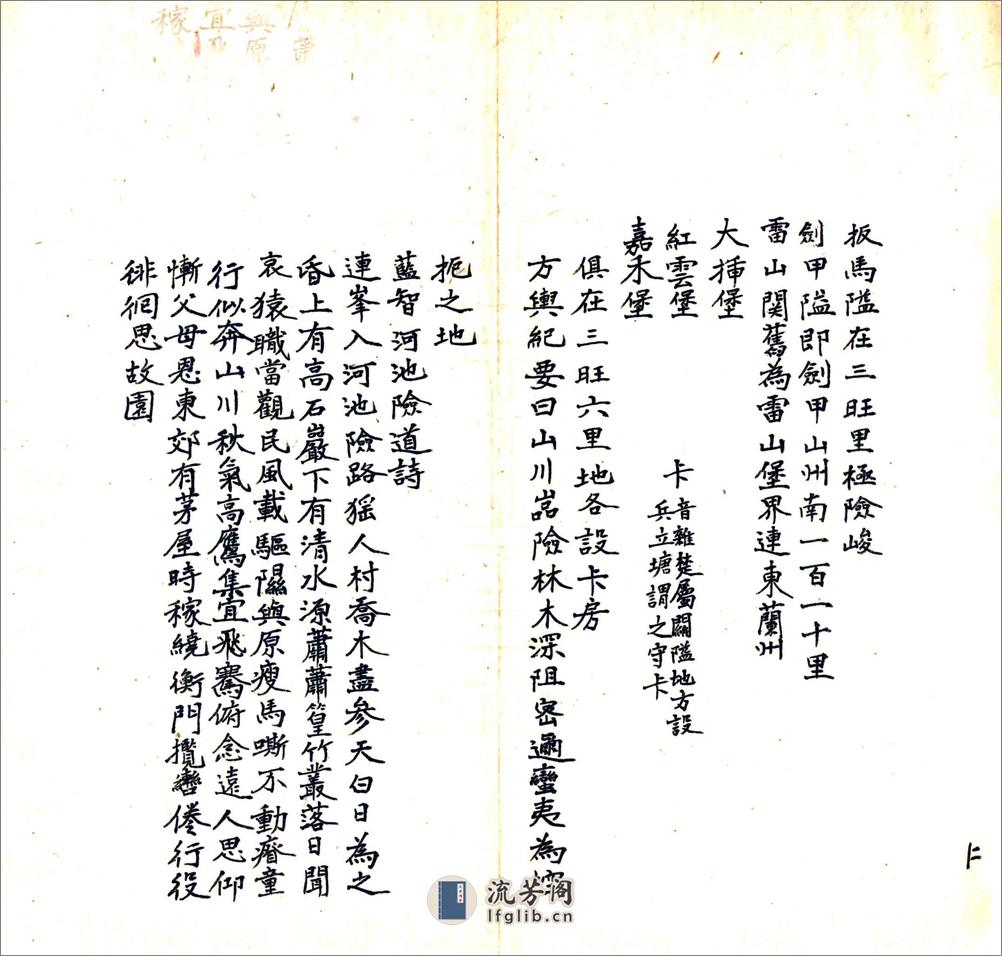 扳馬隘在三旺里極險峻
劍甲隘即劍甲山州南一百一十里
雷山関舊為雷山堡界連東蘭州
大揷堡
紅雲堡
卡音雜楚屬關隘地方設
兵立塘謂之守卡
嘉禾堡
俱在三旺六里地各設卡房
方輿紀要曰山川嵓險林木深阻密邇蠻夷為控
扼之地
藍智河池險道詩
連峯入河池險路猺人村喬木盡參天白日為之
昏上有高石巖下有清水源蕭蕭篁竹叢落日聞
哀猿職當觀民風載驅隰與原瘦馬嘶不動瘠童
行似奔山川秋氣高鷹集宜飛騫俯念遠人思仰
慚父母恩東郊有茅屋時稼繞衡門攬轡倦行役
徘徊思故園
稼宜與
原
流芳阁
lfglib.cn